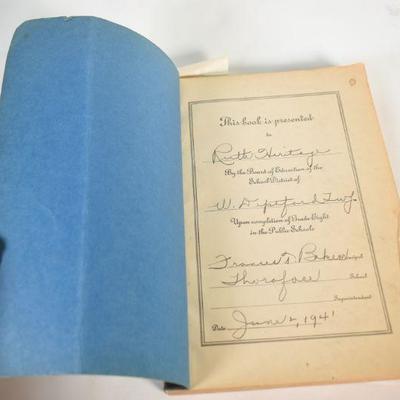 This book is presented
to
Ruth Heritage
By the Board of Education of the
School District of
W. Deptford Twp.
Upon completion of Grade Eight
in the Public Schools
Frances T. Baker Principal
Thorofare School
Superintendent
Date June 2, 1941